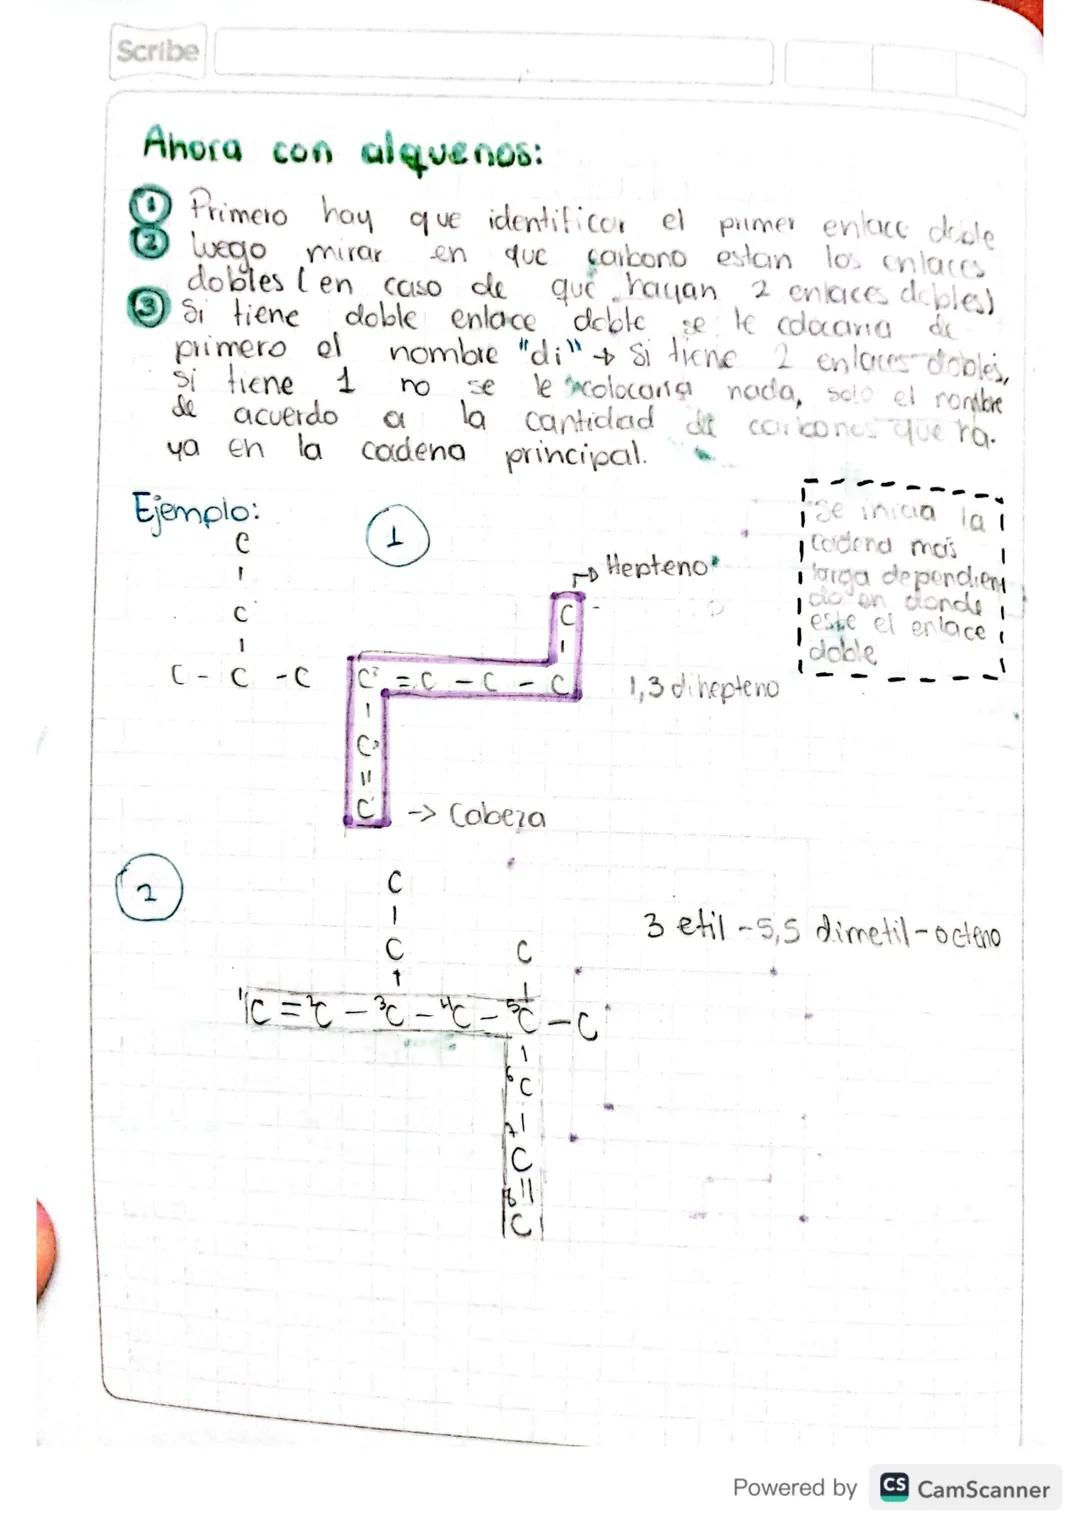 Scribe
Ahora con alquenos:
1 Primero hay que identificar el primer enlace doble
2 luego mirar en que carbono estan los enlaces
dobles (en caso de que hayan 2 enlaces dobles)
3 Si tiene doble enlace doble se le colocaria de
primero el nombre "di" → Si tiene 2 enlaces dobles,
si tiene 1 no se le colocaria nada, solo el nombre
de acuerdo a la cantidad de carbonos que ha.
ya en la cadena principal.
Ejemplo:
1
Se inicia la
cadena más
larga dependien
do en donde
este el enlace
doble
C
C
→ Hepteno
C
C - C - C
C³ = C - C - C
1,3 dihepteno
C²
C¹ → Cabeza
2
C
C
C
3 etil - 5,5 dimetil - octeno
¹C = ²C - ³C - ⁴C - ⁵C - C
⁶C
⁷C
⁸C
Powered by CS CamScanner